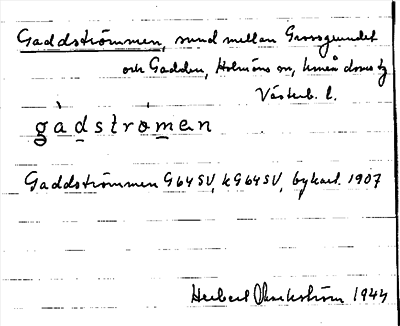 Gaddströmmen, sund mellan Grossgrundet
och Gadden, Holmöns sn, Umeå doms tg
Västerb. l.
gadströmen
Gaddströmmen G64SV, kG64SV, bykart. 1907
Herbert 1944